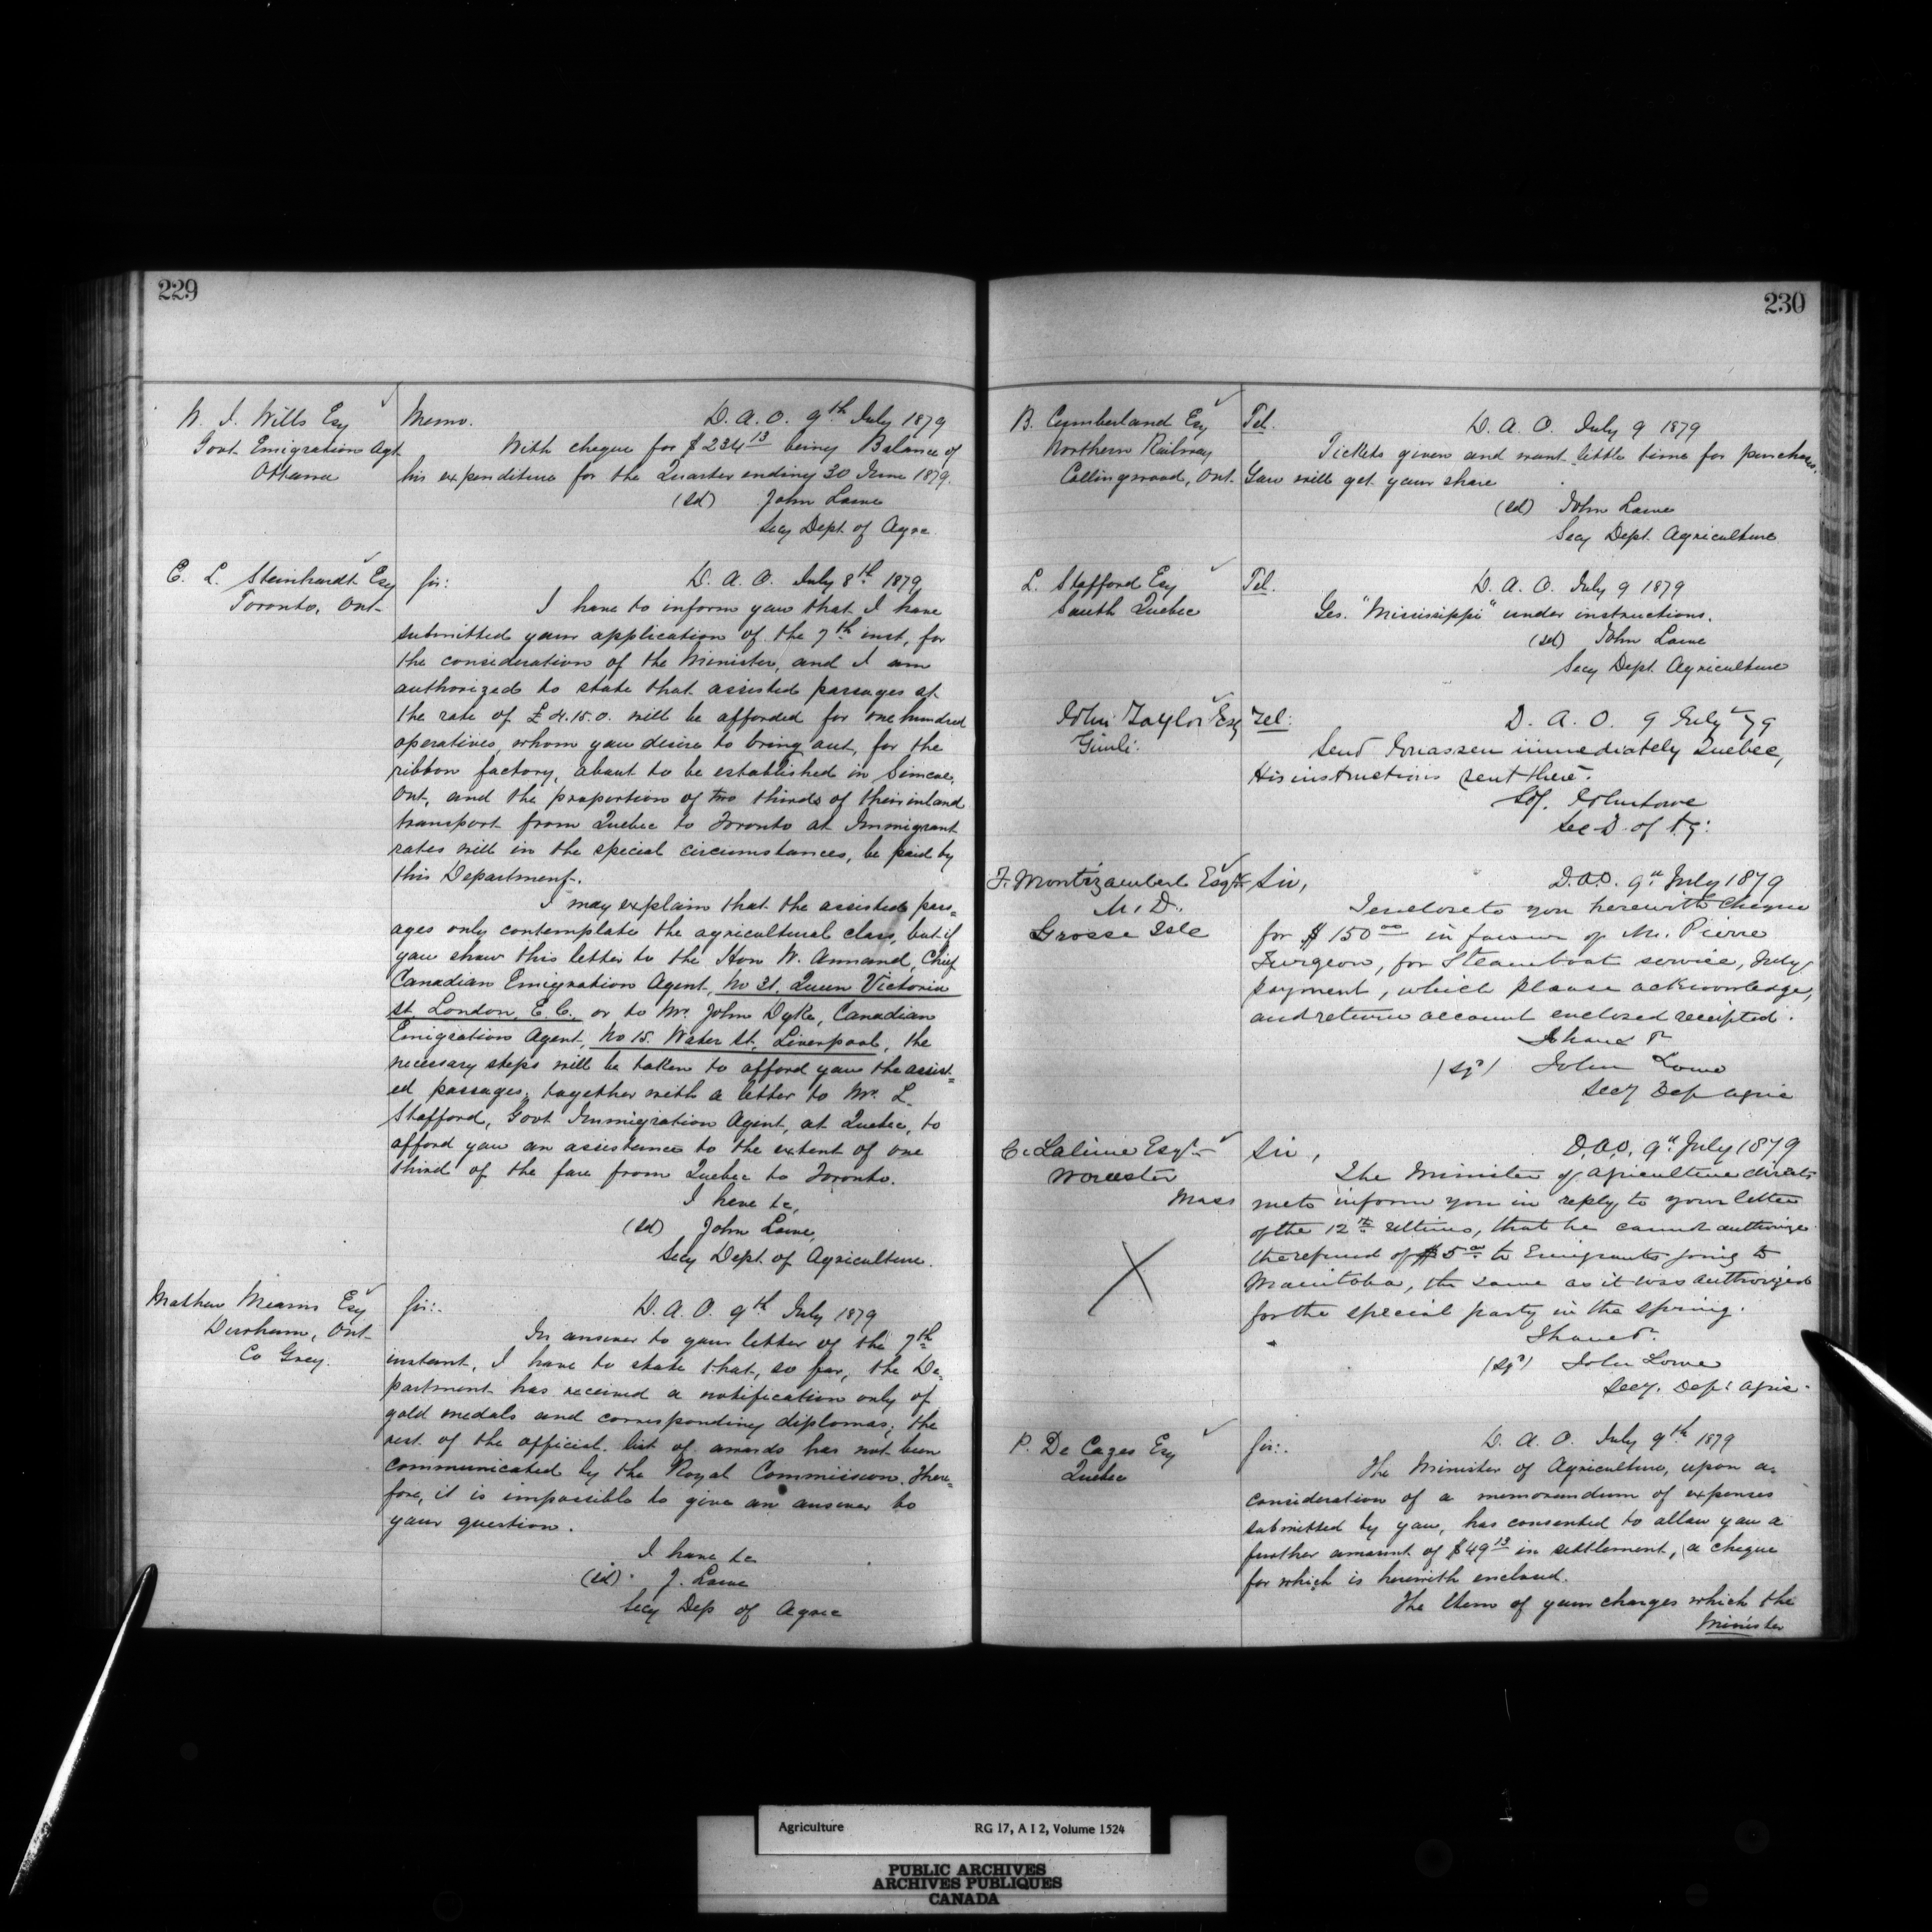 229
W. J. Wills Esq
Govt. Emigration Agt
Ottawa
Memo. D. A. O. 9th July 1879
With cheque for $234 13 being Balance of
his expenditure for the Quarter ending 30 June 1879.
(sd) John Lowe
Secy Dept. of Agre.
E. L. Steinhardt Esq
Toronto, Ont
Sir: D. A. O. July 8th 1879
I have to inform you that I have
submitted your application of the 7th inst, for
the consideration of the Minister, and I am
authorized to state that assisted passages at
the rate of £4.15.0. will be afforded for one hundred
operatives, whom you desire to bring out, for the
ribbon factory, about to be established in Simcoe,
Ont, and the proportion of two thirds of their inland
transport from Quebec to Toronto at Immigrant
rates will in the special circumstances, be paid by
this Department.
I may explain that the assisted pass=
ages only contemplate the agricultural class, but if
you show this letter to the Hon W. Annand, Chief
Canadian Emigration Agent, No 31. Queen Victoria
St. London, E. C. or to Mr. John Dyke, Canadian
Emigration Agent, No 15. Water St. Liverpool, the
necessary steps will be taken to afford you the assist=
ed passages, together with a letter to Mr. L.
Stafford, Govt Immigration Agent, at Quebec, to
afford you an assistance to the extent of one
third of the fare from Quebec to Toronto.
I have &c,
(sd) John Lowe,
Secy Dept. of Agriculture.
Mathew Mearns Esq
Durham, Ont
Co Grey.
Sir:. D. A. O. 9th July 1879
In answer to your letter of the 7th
instant, I have to state that, so far, the De=
partment has received a notification only of
gold medals and corresponding diplomas; the
rest of the official list of awards has not been
communicated by the Royal Commission. There=
fore, it is impossible to give an answer to
your question.
I have &c
(sd) J. Lowe
Secy Dep of Agric
230
B. Cumberland Esq
Northern Railway
Collingwood, Ont.
Tel. D. A. O. July 9 1879
Tickets given and want little time for purchase.
You will get your share
(sd) John Lowe
Secy Dept. Agriculture
L. Stafford Esq
South Quebec
Tel. D. A. O. July 9 1879
Yes. "Mississippi" under instructions.
(sd) John Lowe
Secy Dept. Agriculture
John Taylor Esq
Gimli.
Tel: D. A. O. 9 July 79
Send Jonassen immediately Quebec,
His instructions sent there.
Sd. John Lowe
Sec D. of Ag:
F. Montizambert Esqr
M. D.
Grosse Isle
Sir, D.A.O. 9th July 1879
I enclose to you herewith cheque
for $150 00 in favour of Mr. Pierre
Turgeon, for Steamboat service, July
payment, which please acknowledge,
and return account enclosed receipted.
I have &
(sgd) John Lowe
Secy Dep Agric
C. Lalime Esqr
Worcester
Mass
Sir, D.A.O. 9th July 1879
The Minister of Agriculture directs
me to inform you in reply to your letter
of the 12th Ultimo, that he cannot authorize
the refund of $5 00 to Emigrants going to
Manitoba, the same as it was authorized
for the special party in the Spring.
I have &.
(sgd) John Lowe
Secy. Dept Agric.
P. De Cazes Esq
Quebec
Sir:. D. A. O. July 9th 1879
The Minister of Agriculture, upon a
consideration of a memorandum of expenses
submitted by you, has consented to allow you a
further amount of $49 13 in settlement, a cheque
for which is herewith enclosed.
The Item of your charges which the
Minister
Agriculture RG 17, A I 2, Volume 1524
PUBLIC ARCHIVES
ARCHIVES PUBLIQUES
CANADA